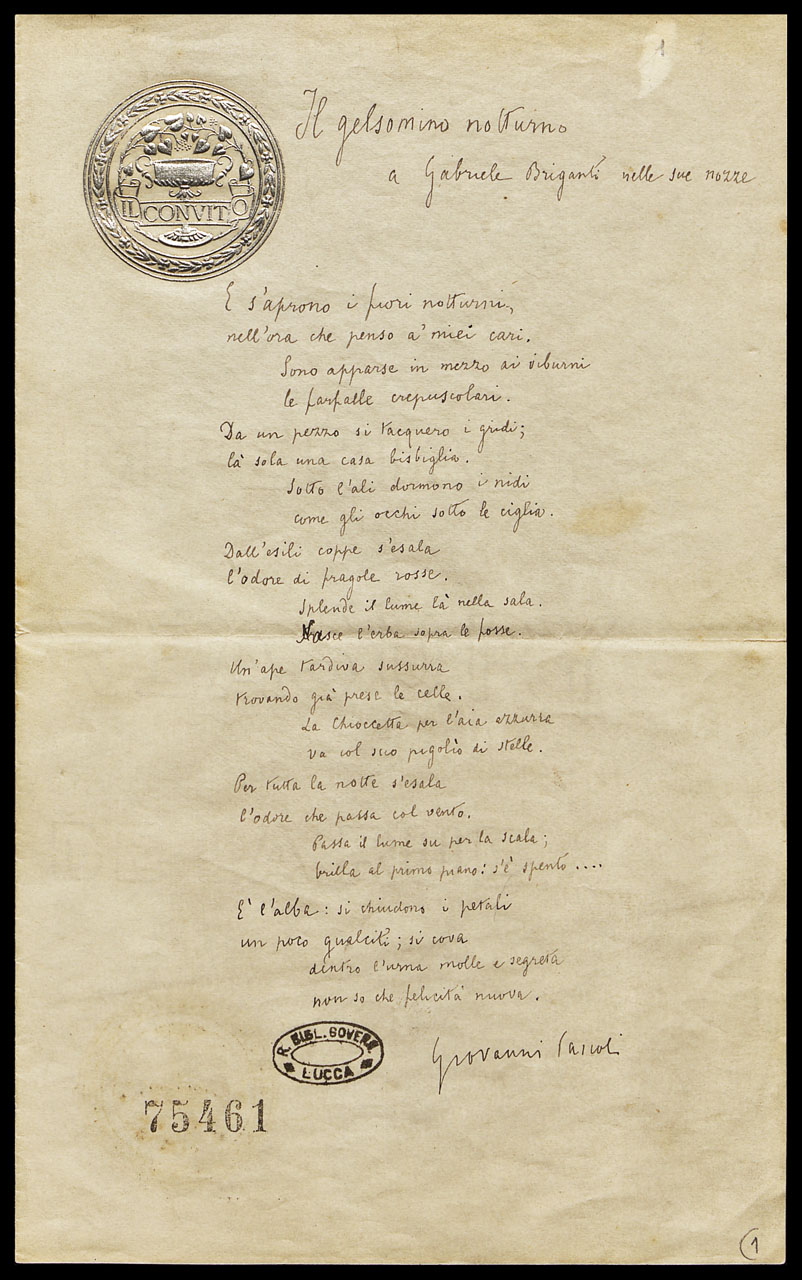 1
IL CONVITO
Il gelsomino notturno
a Gabriele Briganti nelle sue nozze
E s'aprono i fiori notturni,
nell'ora che penso a' miei cari.
Sono apparse in mezzo ai viburni
le farfalle crepuscolari.
Da un pezzo si tacquero i gridi;
là sola una casa bisbiglia.
Sotto l'ali dormono i nidi
come gli occhi sotto le ciglia.
Dall'esili coppe s'esala
l'odore di fragole rosse.
Splende il lume là nella sala.
Nasce l'erba sopra le fosse.
Un'ape tardiva sussurra
trovando già prese le celle.
La Chioccetta per l'aia azzurra
va col suo pigolìo di stelle.
Per tutta la notte s'esala
l'odore che passa col vento.
Passa il lume su per la scala;
brilla al primo piano: s'è spento....
E' l'alba: si chiudono i petali
un poco gualciti; si cova
dentro l'urna molle e segreta
non so che felicità nuova.
Giovanni Pascoli
R. BIBL. GOVERN.
LUCCA
75461
1